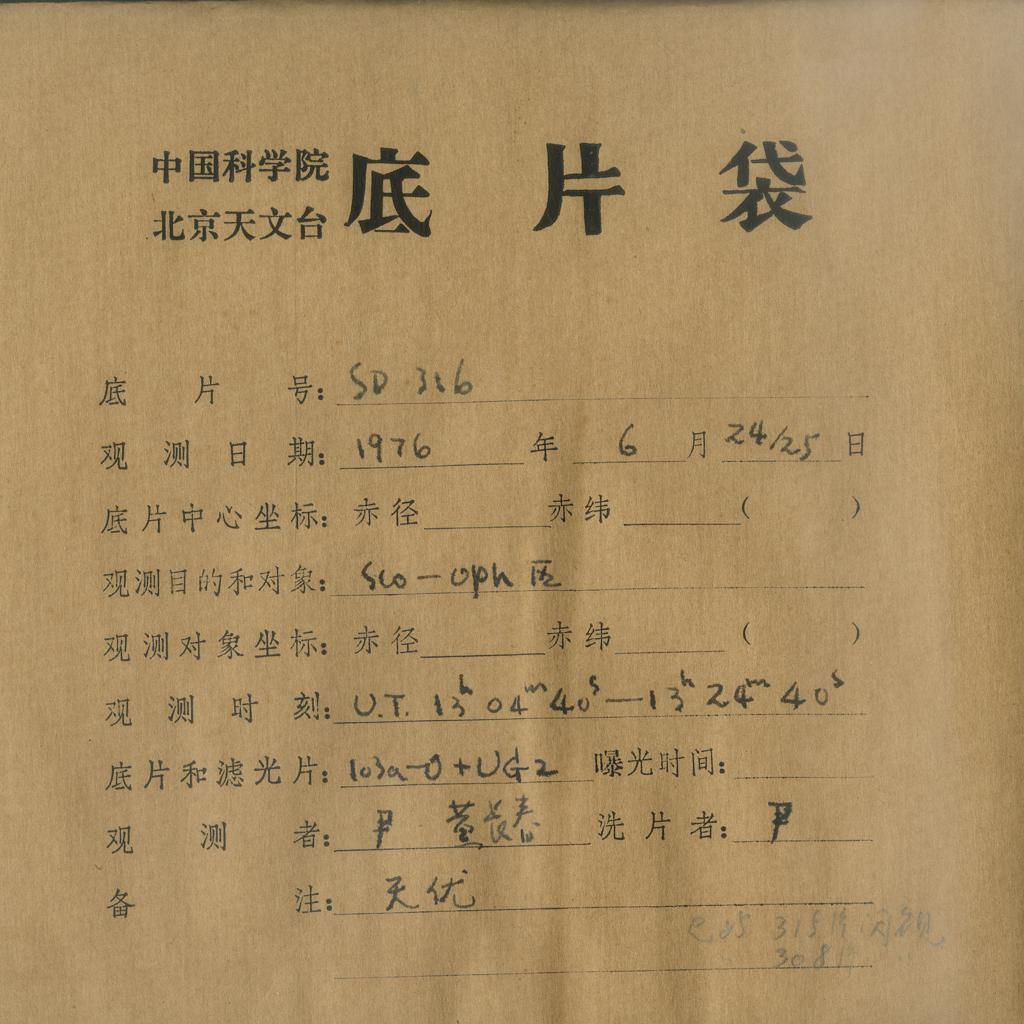 中国科学院
北京天文台
底片袋
底片号: SD 316
观测日期: 1976 年 6 月 24/25 日
底片中心坐标: 赤径 赤纬 ( )
观测目的和对象: Sco-Oph 区
观测对象坐标: 赤径 赤纬 ( )
观测时刻: U.T. 13h 04m 40s — 13h 24m 40s
底片和滤光片: 103a-O + UG2 曝光时间:
观测者: 尹 黄长春 洗片者: 尹
备注: 天优
已与 315片闪视
308片